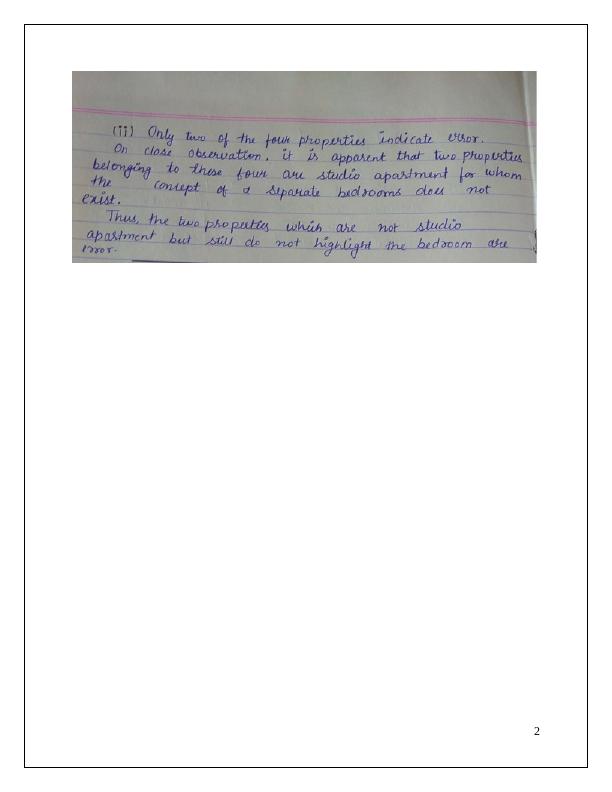 (ii) Only two of the four properties indicate error.
On close observation, it is apparent that two properties
belonging to these four are studio apartment for whom
the concept of a separate bedrooms does not
exist.
Thus, the two properties which are not studio
apartment but still do not highlight the bedroom are
error.
2